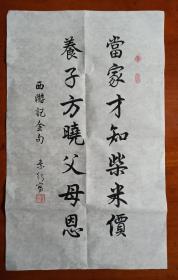 當家才知柴米價
養子方曉父母恩
西游記金句